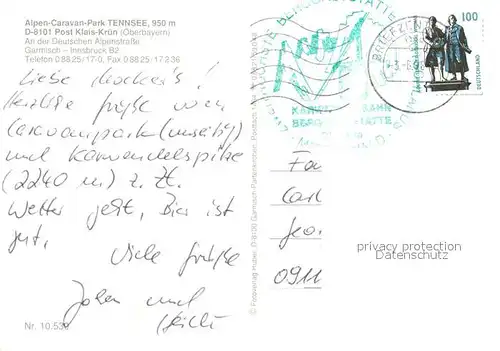 Alpen-Caravan-Park TENNSEE, 950 m
D-8101 Post Klais-Krün (Oberbayern)
An der Deutschen Alpenstraße
Garmisch – Innsbruck B2
Telefon 0 88 25 / 17-0, Fax 0 88 25 / 17 2 36
Liebe
Herzliche Grüße vom
Caravanpark (umseitig)
und Karwendelspitze
(2240 m) z. Zt.
Wetter geht, Bier ist
gut.
Viele Grüße
und
Nr. 10.539
© Fotoverlag Huber, D-8100 Garmisch-Partenkirchen
BRIEFZENTRUM
100
DEUTSCHLAND
BERG
Fa
Carl
Geo
0911
privacy protection
DATENSCHUTZ